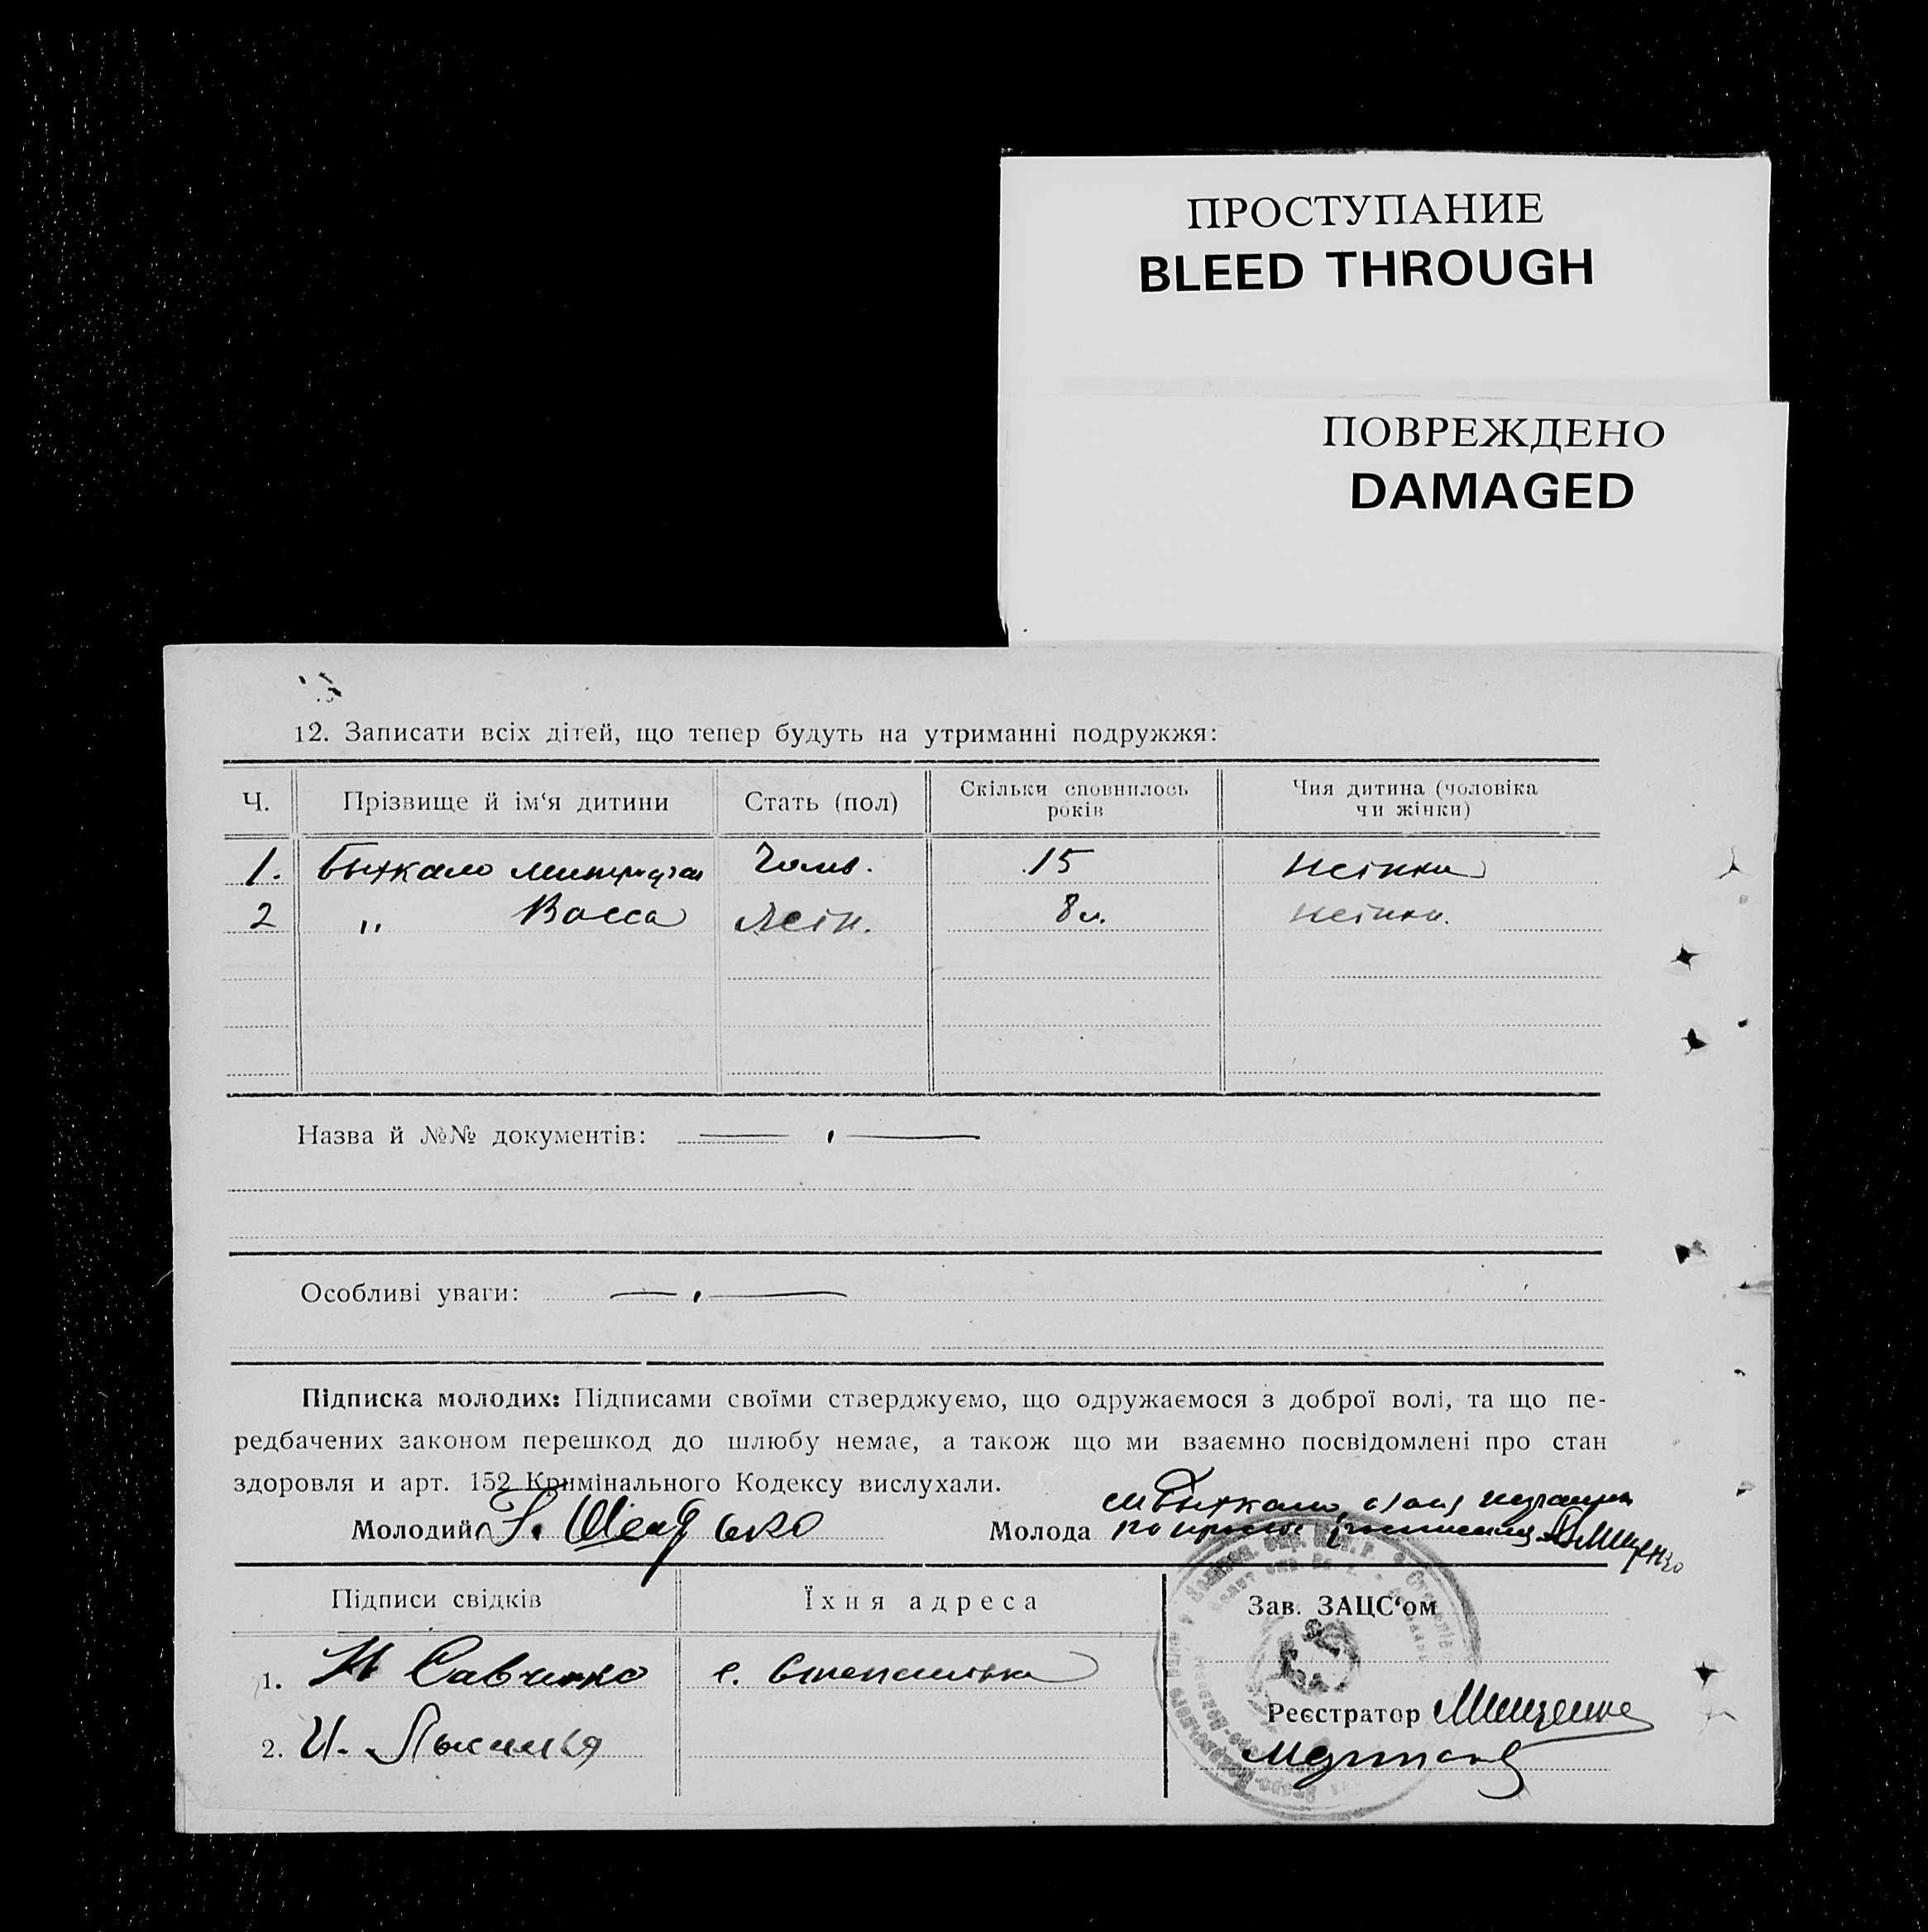 ПРОСТУПАНИЕ
BLEED THROUGH
ПОВРЕЖДЕНО
DAMAGED
12. Записати всіх дітей, що тепер будуть на утриманні подружжя:
Ч. Прізвище й ім‘я дитини Стать (пол) Скільки сповнилось років Чия дитина (чоловіка чи жінки)
1. Чолов. 15 жінки
2 " Васса жін. 8 жінки.
Назва й №№ документів:
Особливі уваги:
Підписка молодих: Підписами своїми стверджуємо, що одружаємося з доброї волі, та що пе-
редбачених законом перешкод до шлюбу немає, а також що ми взаємно посвідомлені про стан
здоровля и арт. 152 Кримінального Кодексу вислухали.
Молодий Молода
Підписи свідків Їхня адреса Зав. ЗАЦС‘ом
1. Савченко с. Степанівка
Реєстратор Мищенко
2. И.